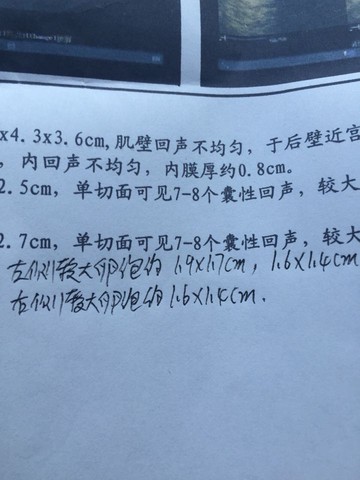 x4.3x3.6cm,肌壁回声不均匀，于后壁近宫
，内回声不均匀，内膜厚约0.8cm。
2.5cm，单切面可见7-8个囊性回声，较大
2.7cm，单切面可见7-8个囊性回声，较大
左侧较大卵泡约 1.9X1.7cm，1.6X1.4cm
右侧较大卵泡约 1.6X1.4cm.